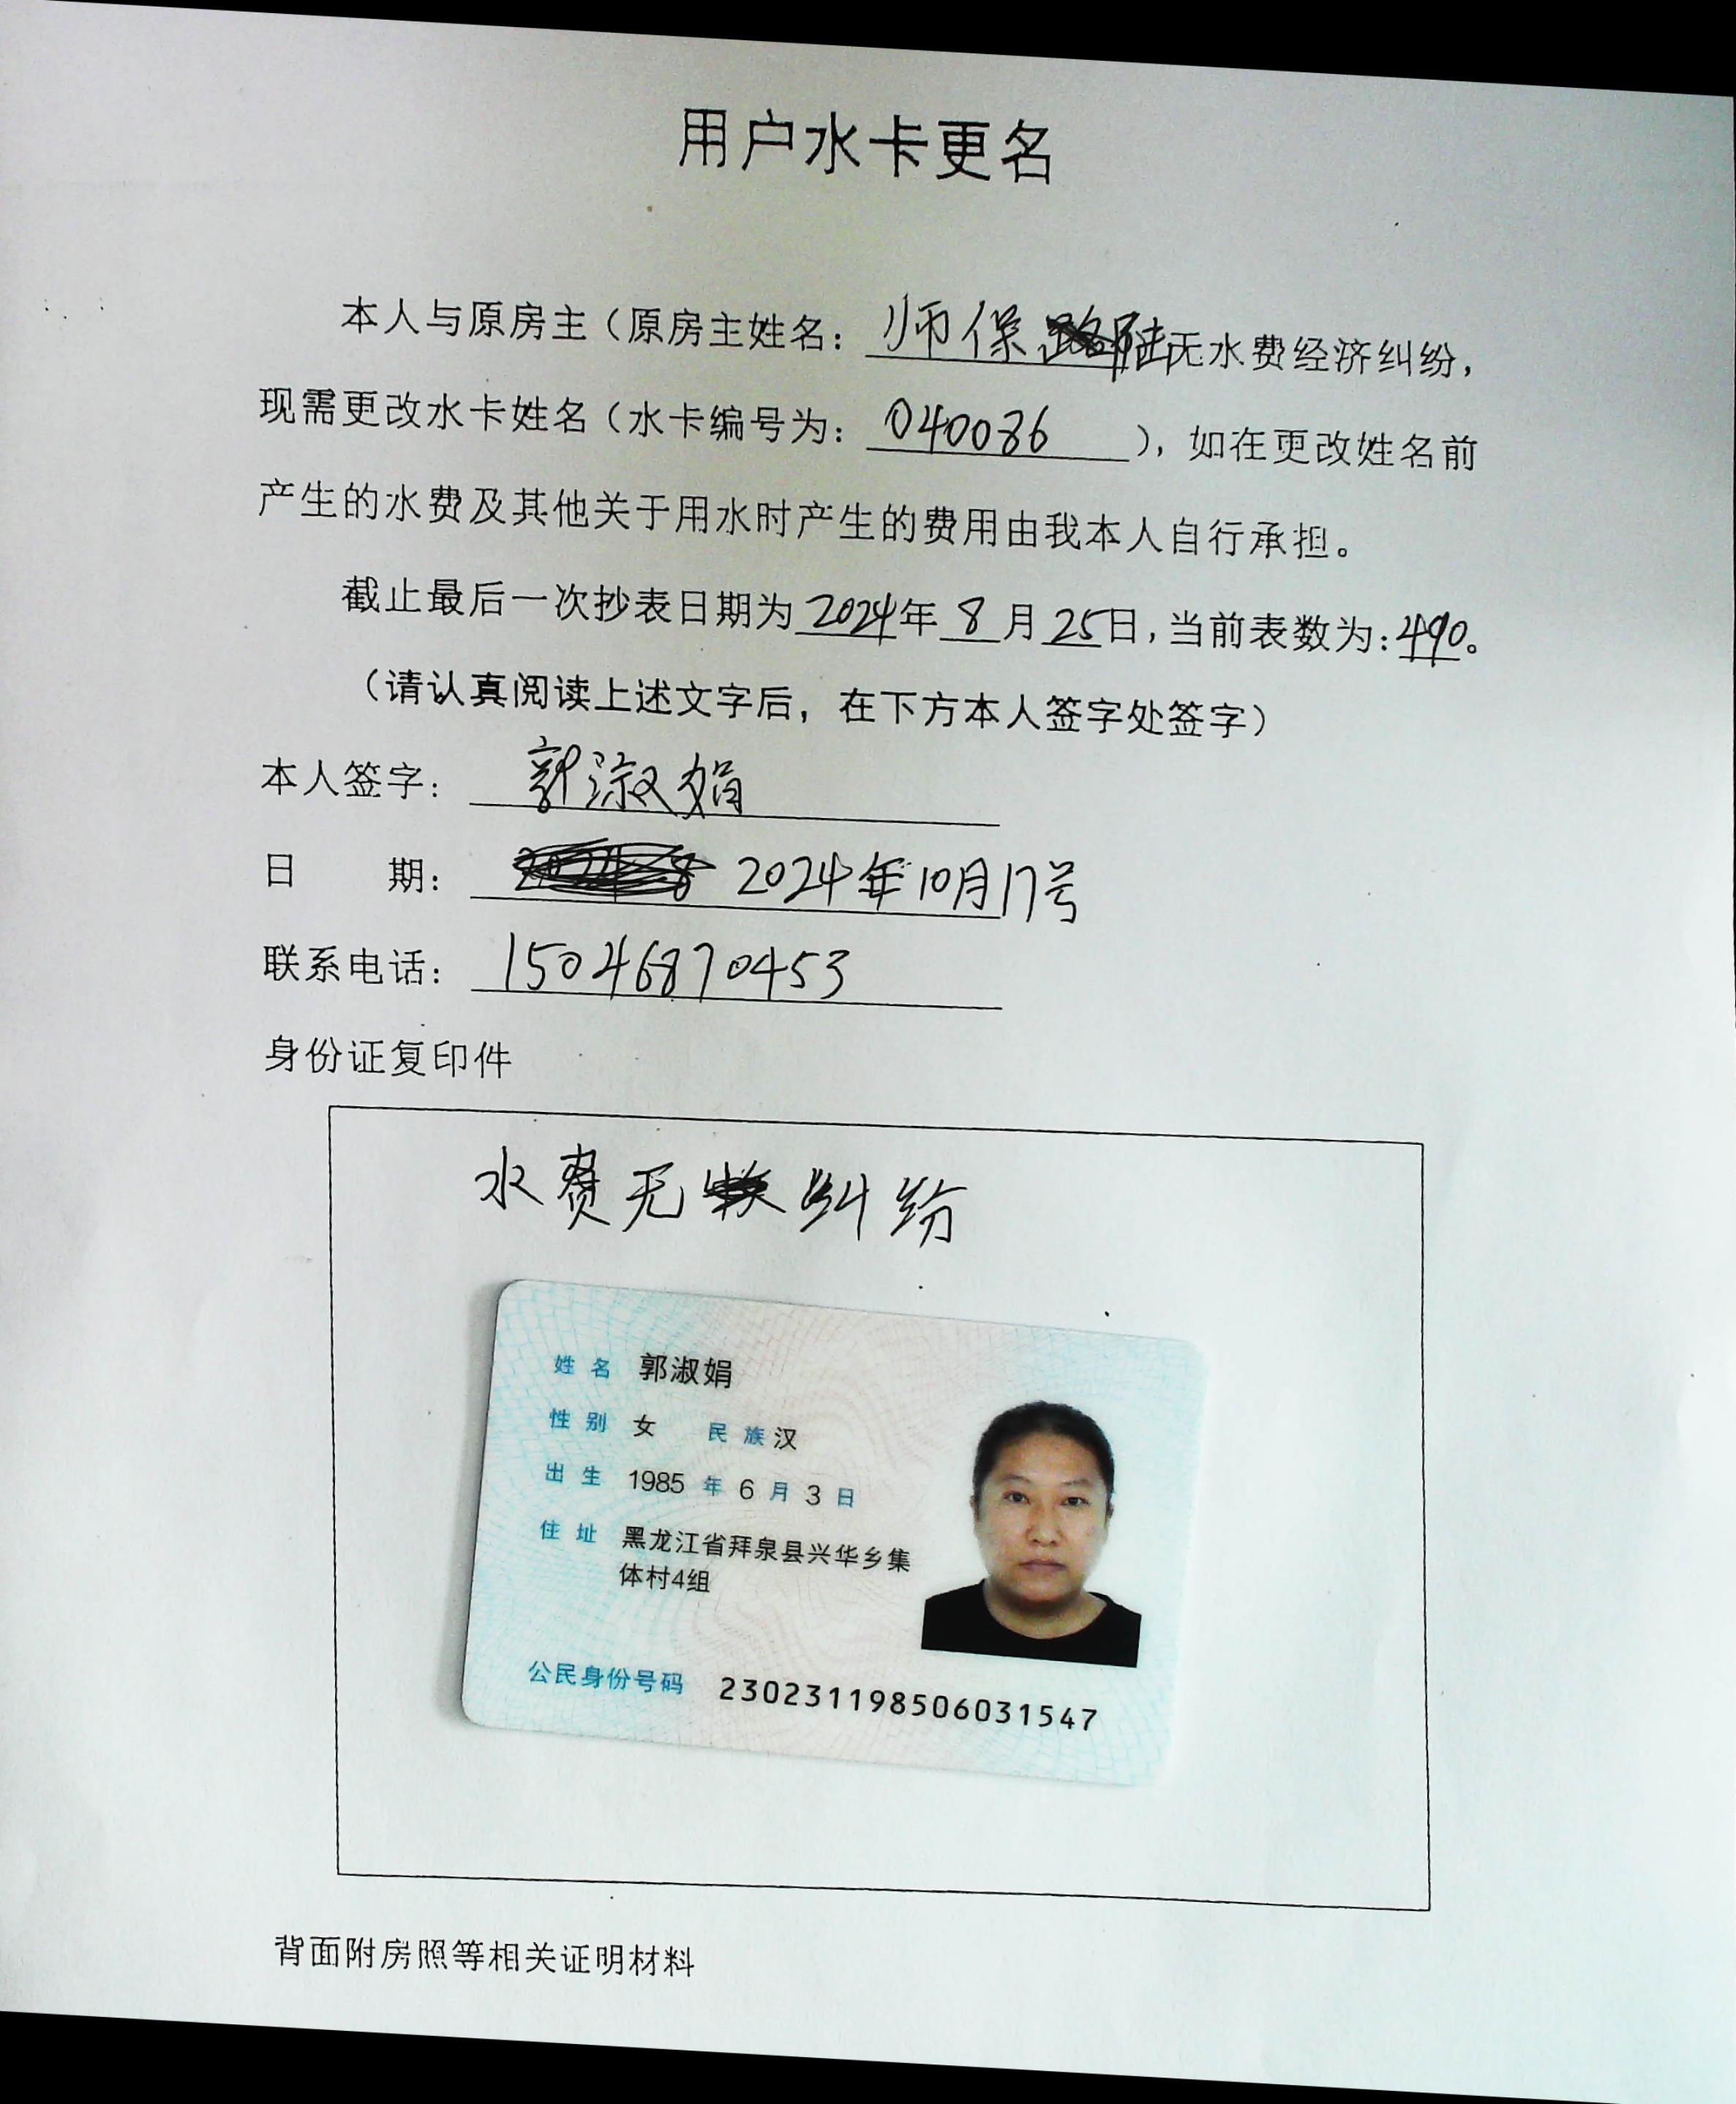 用户水卡更名
本人与原房主（原房主姓名：师保陆无水费经济纠纷，
现需更改水卡姓名（水卡编号为：040086），如在更改姓名前
产生的水费及其他关于用水时产生的费用由我本人自行承担。
截止最后一次抄表日期为2024年8月25日，当前表数为：490。
（请认真阅读上述文字后，在下方本人签字处签字）
本人签字：郭淑娟
日 期：2024年10月17号
联系电话：15046870453
身份证复印件
水费无纠纷
姓名 郭淑娟
性别 女 民族 汉
出生 1985 年 6 月 3 日
住址 黑龙江省拜泉县兴华乡集
体村4组
公民身份号码 230231198506031547
背面附房照等相关证明材料